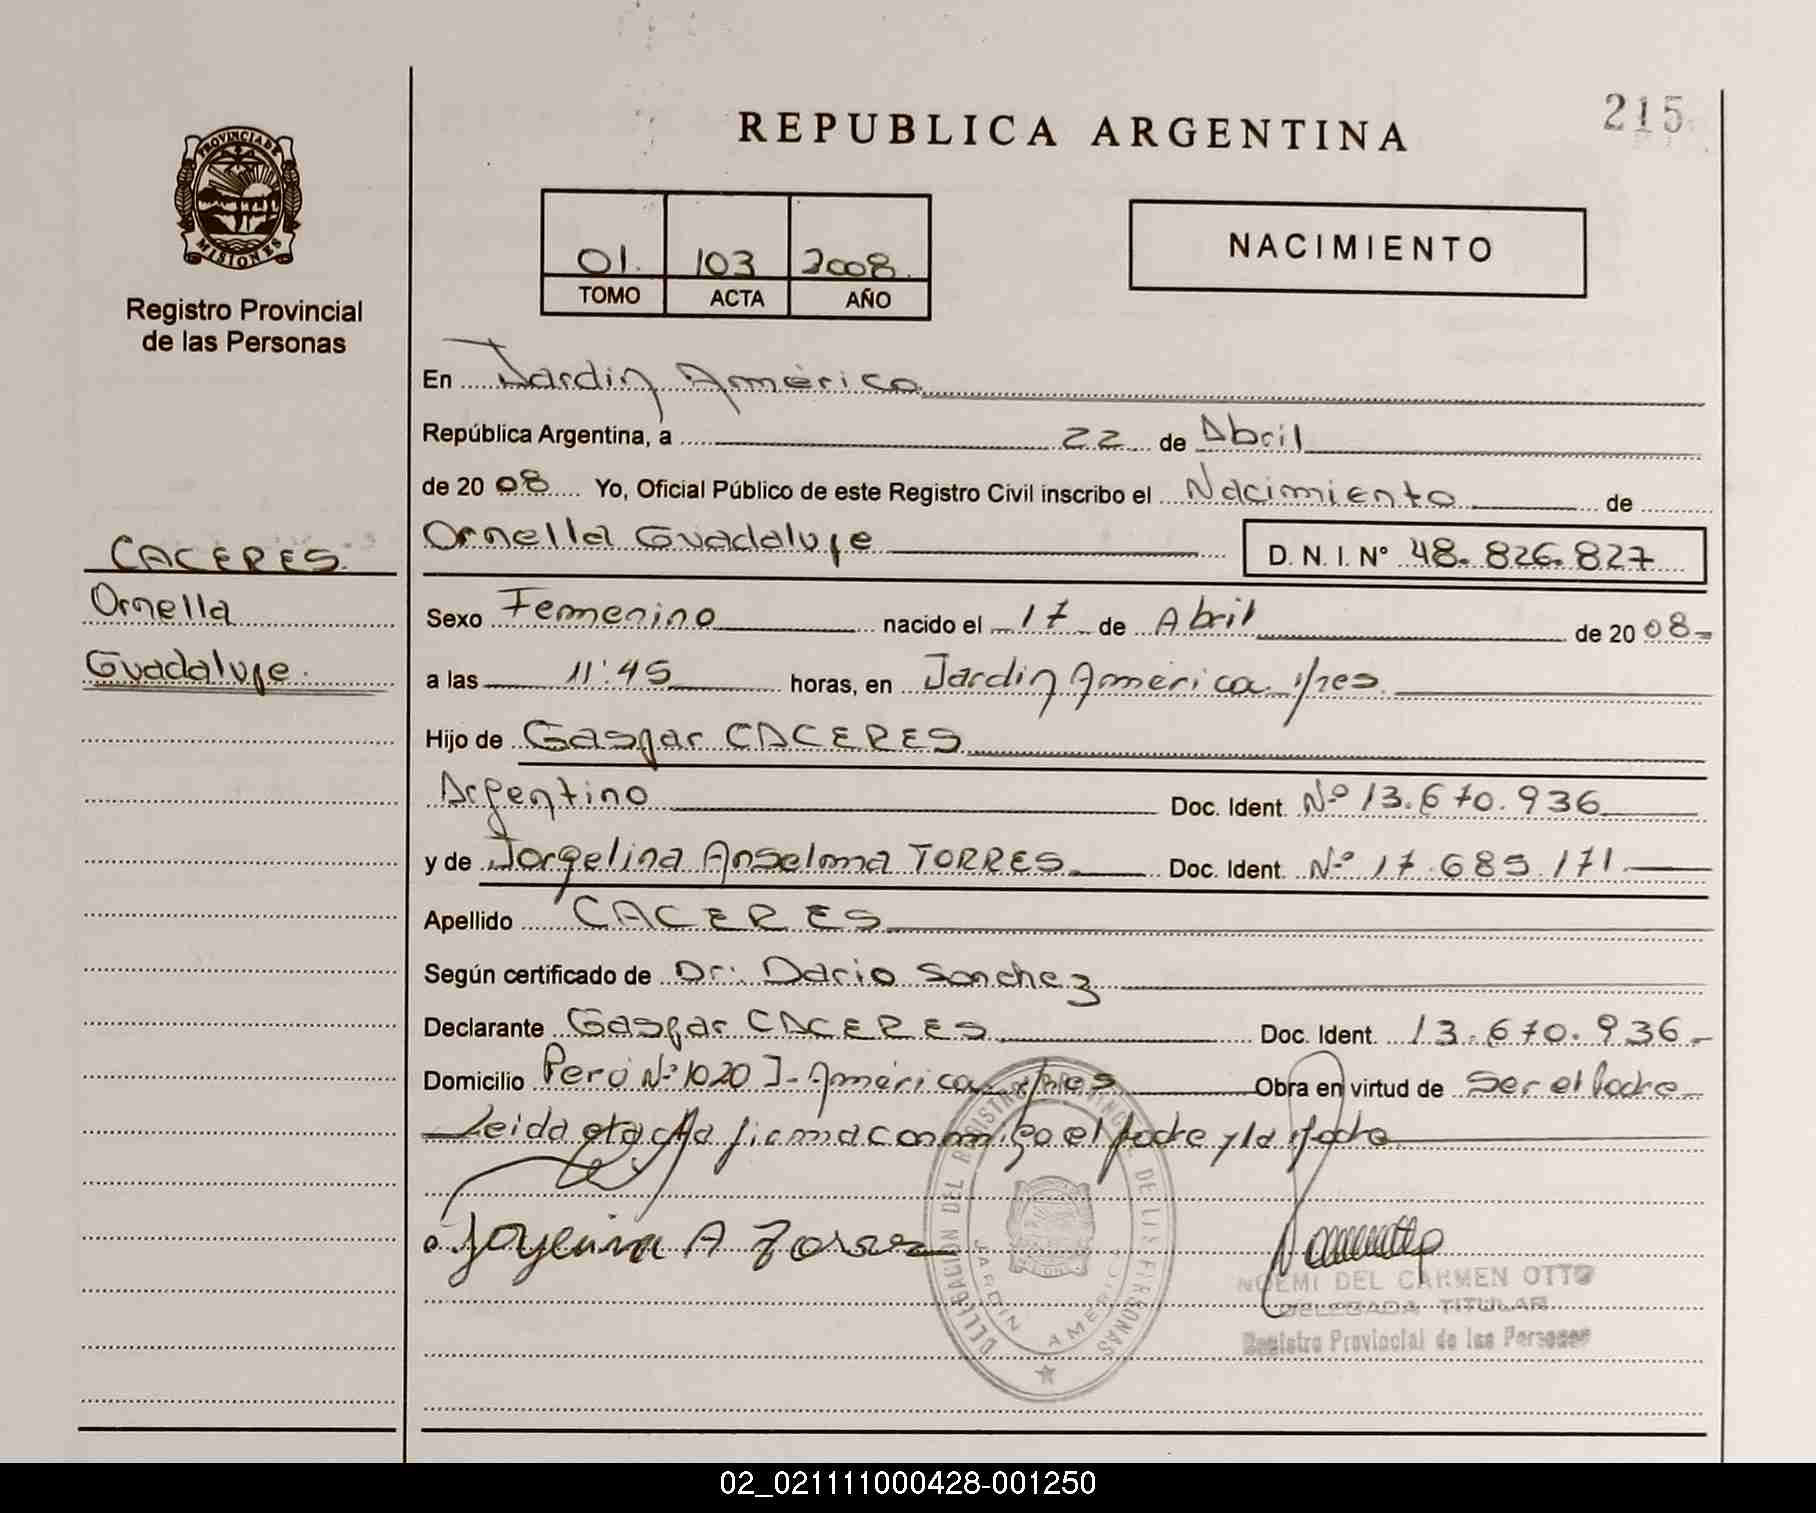 215
REPUBLICA ARGENTINA
PROVINCIA DE
MISIONES
Registro Provincial
de las Personas
01. 103 2008.
TOMO ACTA AÑO
NACIMIENTO
En Jardin América
República Argentina, a 22 de Abril
de 20 08 Yo, Oficial Público de este Registro Civil inscribo el Nacimiento de
CACERES.
Ornella Guadalupe D. N. I. Nº 48. 826. 827
Ornella
Sexo Femenino nacido el 17 de Abril de 20 08-
Guadalupe.
a las 11:45 horas, en Jardin América
Hijo de Gaspar CACERES
Argentino Doc. Ident. Nº 13.670.936
y de Jorgelina Anselma TORRES Doc. Ident. Nº 17.685.171
Apellido CACERES
Según certificado de Dr. Dario Sanchez
Declarante Gaspar CACERES Doc. Ident. 13.670.936.-
Domicilio Perú Nº 1020 J. América Obra en virtud de Ser el Padre
Leida acta firma conmigo el Padre y la Madre
DELEGACIÓN DEL REGISTRO PROVINCIAL DE LAS PERSONAS
JARDIN AMERICA
NOEMI DEL CARMEN OTTO
DELEGADA TITULAR
Registro Provincial de las Personas
02_021111000428-001250